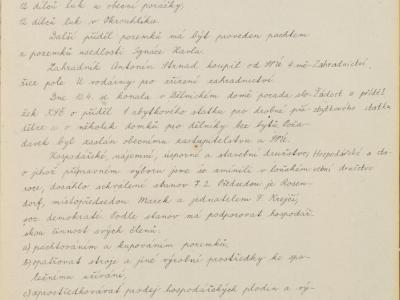 12 dílců luk u obecní porážky,
12 dílců luk v Okrouhlíka.
Další příděl pozemků má být proveden pachtem
z pozemků usedlosti Ignáce Havla.
Zahradník Antonín Strnad koupil od MNV Zahradnictví,
více pole U vodárny pro zřízení zahradnictví.
Dne 10.4. se konala v Dělnickém domě porada slo- Žádost o příděl
žek KSČ o příděl 1 zbytkového statku pro drobné při- zbytkového statku
dělce a o několek domků pro dělníky bez bytů. Poža-
davek byl zaslán obecnímu zastupitelstvu a MNV.
Hospodářské, nájemní, úsporné a stavební družstvo, Hospodářské a sta-
o jehož přípravném výboru jsme se zmínili v loňském vební družstvo
roce, dosáhlo schválení stanov 7.2. Předsedou je Rosen-
dorf, místopředsedou Marek a jednatelem F. Krejčí,
soc. demokraté. Podle stanov má podporovat hospodář-
skou činnost svých členů:
a) pachtováním a kupováním pozemků,
b) opatřovat stroje a jiné výrobní prostředky ke spo-
lečnému užívání,
c) zprostředkovávat prodej hospodářských plodin a vý-